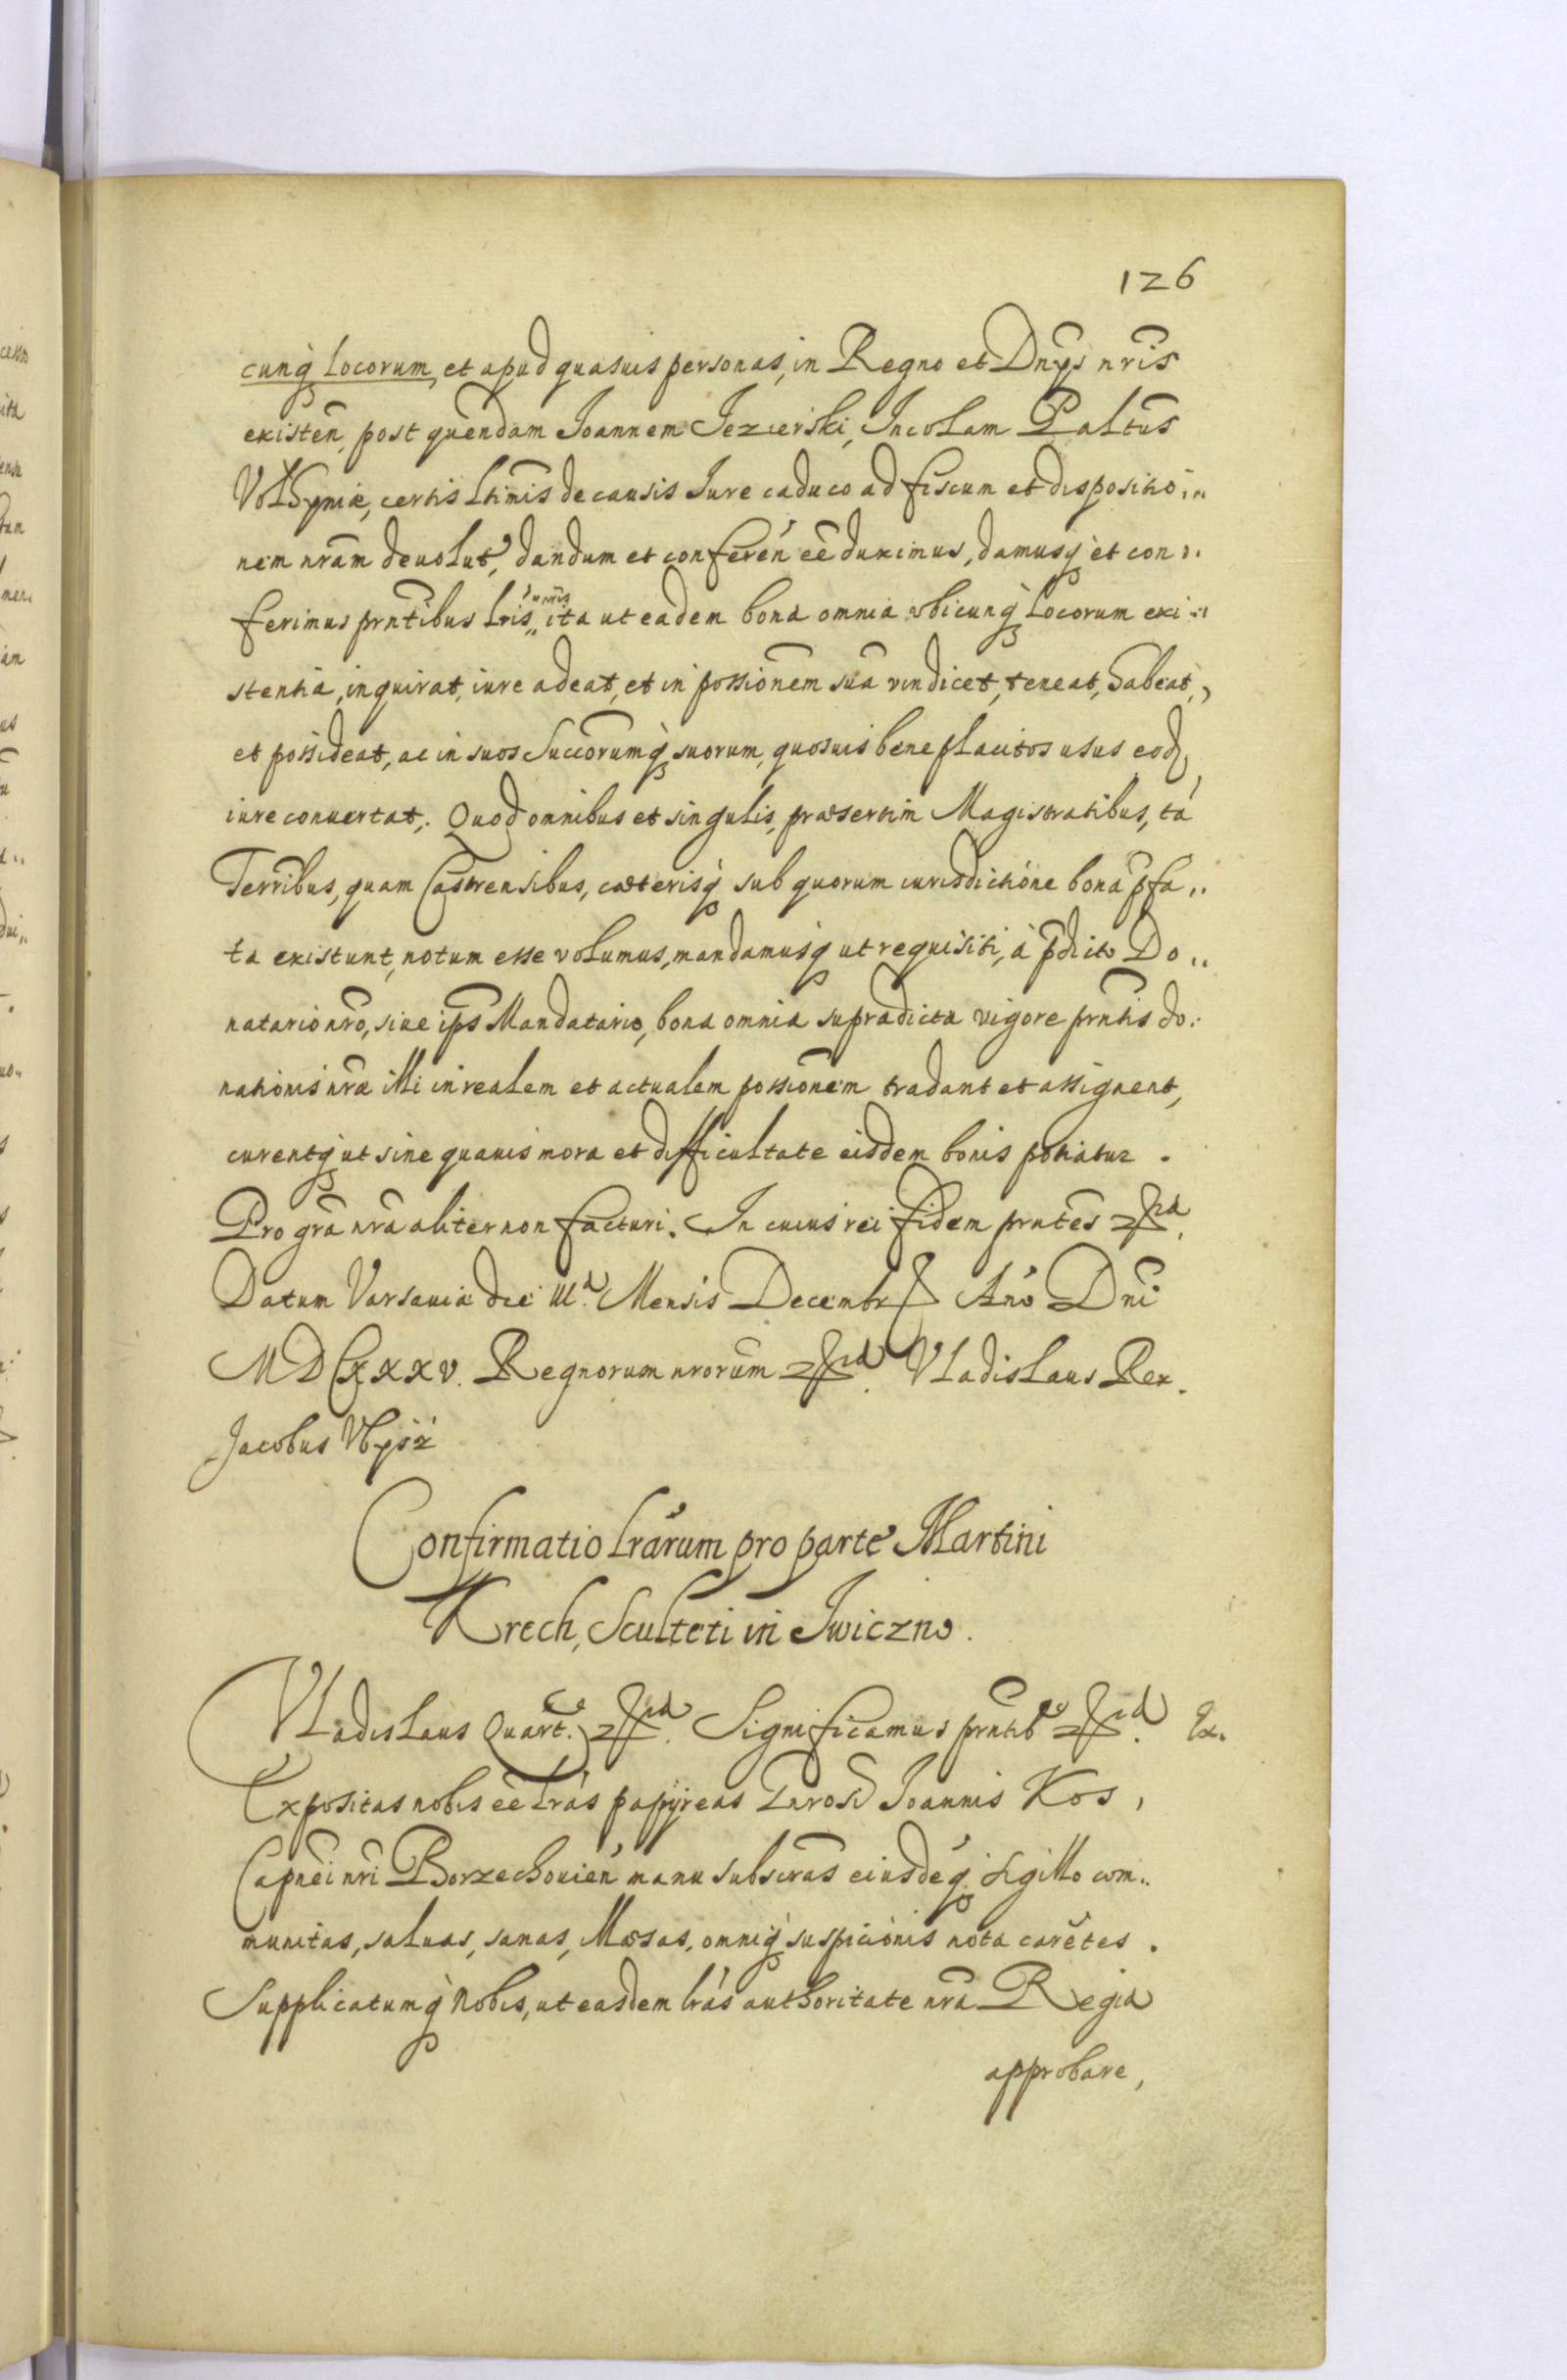 126
cunq̃ locorum, et apud quasuis personas, in Regno et Dnÿs nris
existeñ, post quendam Joannem Jezierski, Incolam Paltũs
Volhyniæ, certis Ltimis de causis Jure caduco ad fiscum et dispositio,,
nem nram deuolut, dandum et conferen eẽ duximus, damusq́ et con,,
ferimus prntibus lris, ita ut eadem bona omnia ubicunq́ locorum exi,,
stentia, inquirat, iure adeat, et in possionem suã vindicet, teneat, habeat,
et possideat, ac in suos Succorumq́ suorum, quosuis beneplacitos usus eod
iure conuertat. Quod omnibus et singulis, præsertim Magistratibus, tã
Terribus, quam Castrensibus, cæterisq́ sub quorum iurisdictione bona p̃fa,,
ta existunt, notum esse volumus, mandamusq́ ut requisiti, à p̃dicto Do,,
natario nro, siue ips Mandatario, bona omnia supradicta vigore prntis do,,
nationis nræ illi in realem et actualem possionem tradant et assignent,
curentq́ ut sine quauis mora et difficultate eisdem bonis potiatur.
Pro grã nrã aliter non facturi. In cuius rei fidem prntes
Datum Varsauia die III.a Mensis Decembr Ano Dni
MDCXXXV. Regnorum nrorum Vladislaus Rex.
Jacobus Vbysz
Confirmatio lrarum pro parte Martini
Krech, Sculteti in Jwiczno.
Vladislaus Quart. Significamus prntib Ex.
Expositas nobis eẽ lras papyreas Gnrosi Joannis Kos,
Capnei nri Borzechouien manu subscras eiusdeq́ Sigillo com,,
munitas, saluas, sanas, illæsas, omniq́ suspicionis nota carẽtes.
Supplicatumq́ Nobis, ut easdem lras authoritate nrã Regia
approbare,